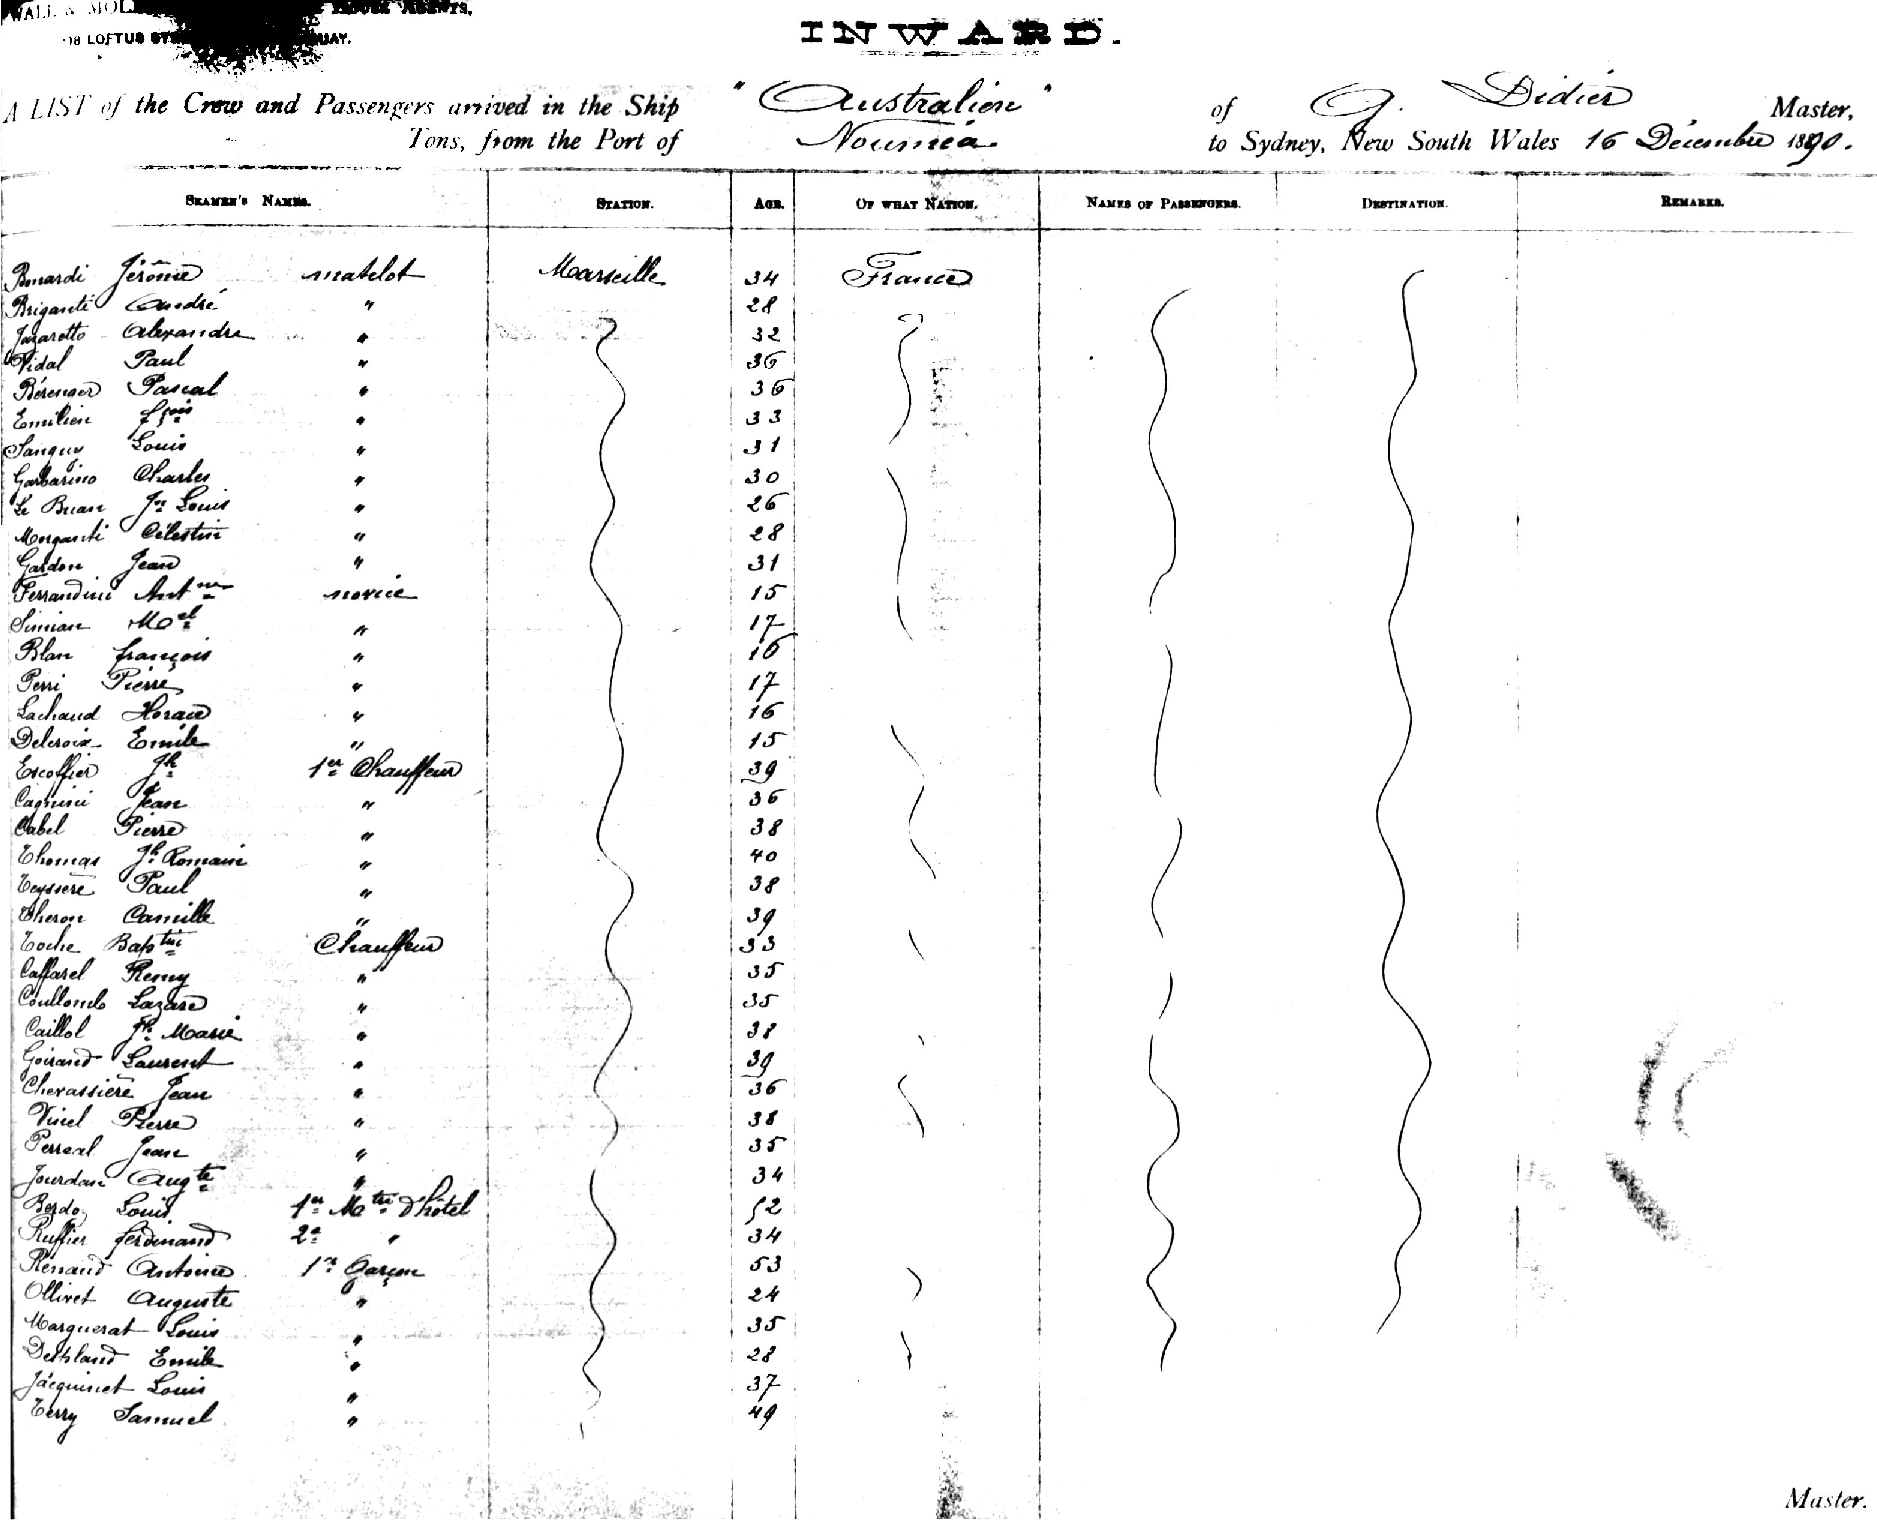 WALL & HOUSE AGENTS,
18 LOFTUS QUAY.
INWARD.
A LIST of the Crew and Passengers arrived in the Ship "Australien" of G. Didier Master,
Tons, from the Port of Nouméa to Sydney, New South Wales 16 Décembre 1890.
SEAMEN'S NAMES. STATION. AGE. OF WHAT NATION. NAMES OF PASSENGERS. DESTINATION. REMARKS.
Jérôme matelot Marseille 34 France
Briganti André " 28
Alexandre " 32
Vidal Paul " 36
Bérenger Pascal " 36
Emilien " 33
Tanguy Louis " 31
Garbarino Charles " 30
Le Buan Jn Louis " 26
Morganti Célestin " 28
Gardon Jean " 31
Ferrandini Antne novice 15
Simian Mel " 17
Blan françois " 16
Perri Pierre " 17
Lachaud Horace " 16
Delcroix Emile " 15
Escoffier Jh 1er Chauffeur 39
Cagnini Jean " 36
Cabel Pierre " 38
Thomas Jh Romain " 40
Teyssère Paul " 38
Theron Camille " 39
Toche Baptin Chauffeur 33
Caffarel Remy " 35
Coullomb Lazare " 35
Caillol Jh Marie " 38
Goirand Laurent " 39
Chevassière Jean " 36
Vinel Pierre " 38
Perreal Jean " 35
Jourdan Augte " 34
Berdo Louis 1er Mtre d'hôtel 52
Ruffier ferdinand 2e " 34
Renaud Antoine 1er Garçon 53
Ollivet Auguste " 24
Marguerat Louis " 35
Emile " 28
Jacquinet Louis " 37
Terry Samuel " 49
Master.